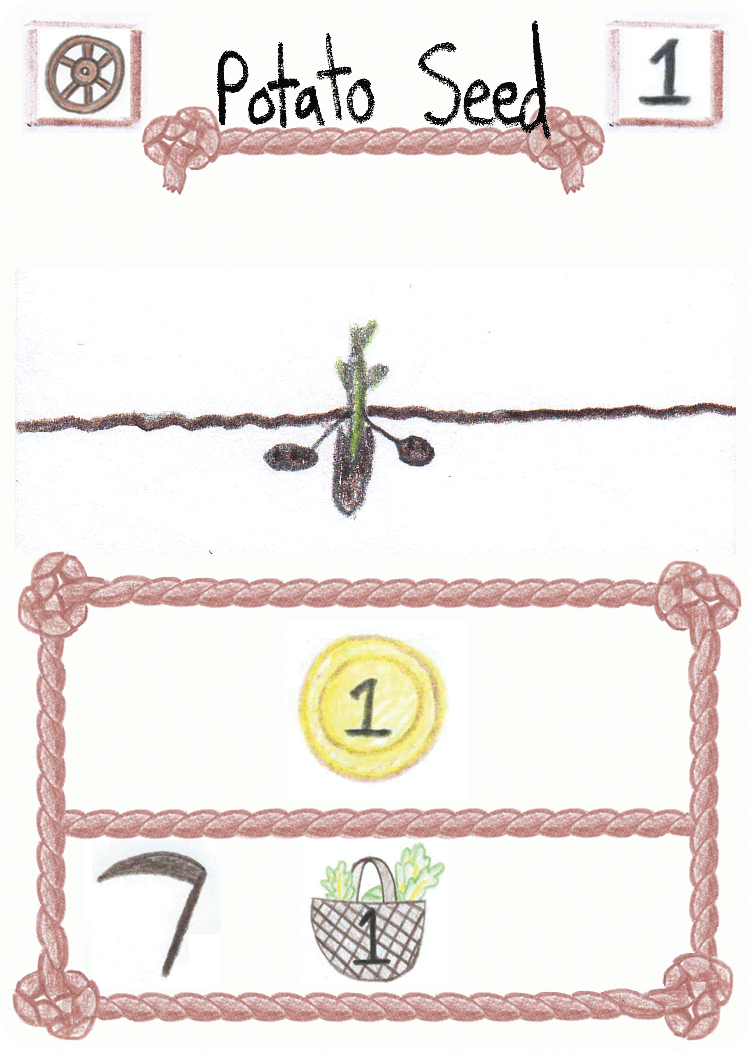 Potato Seed
1
1
1